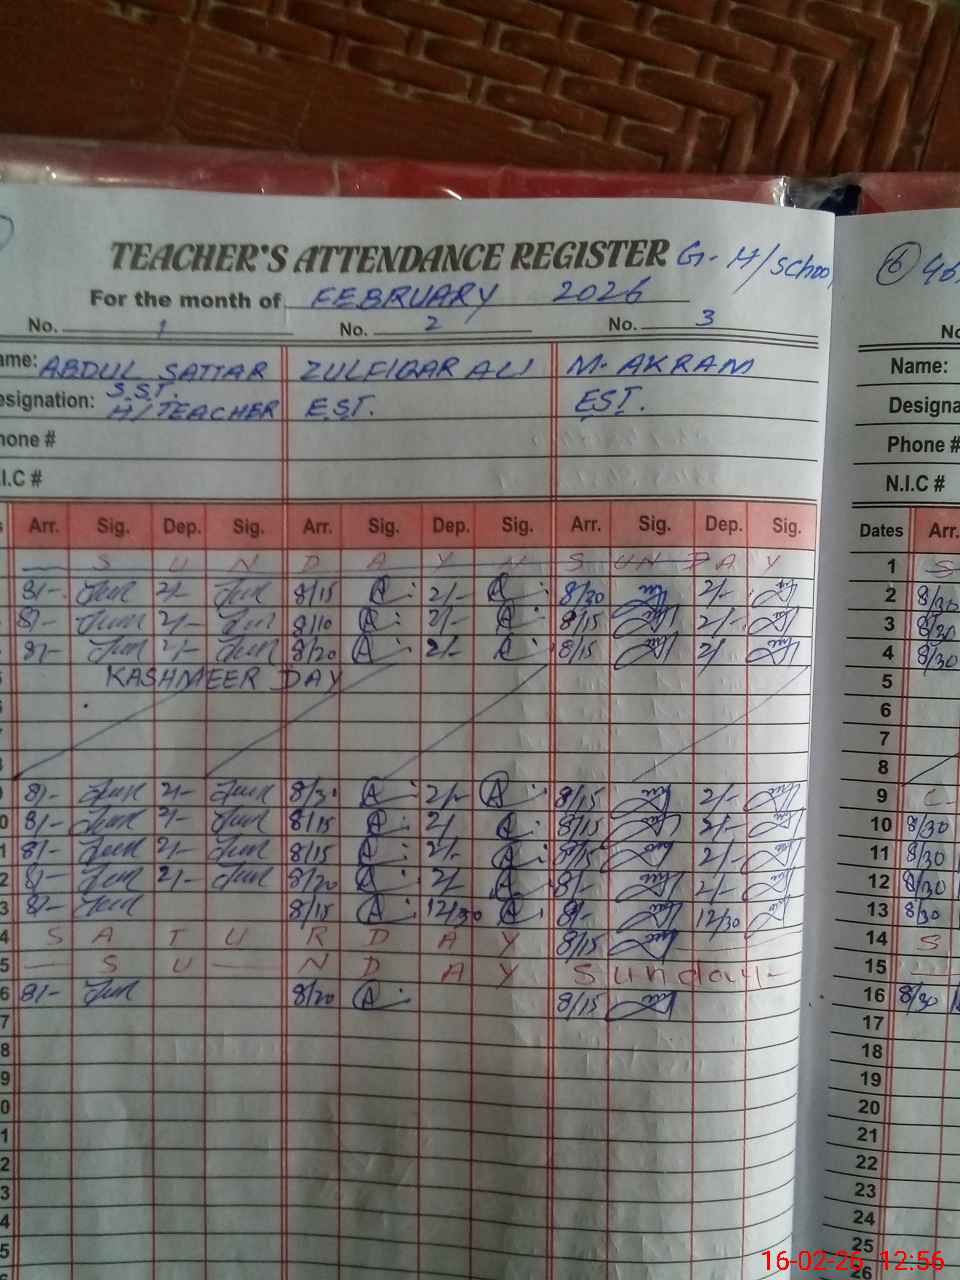 TEACHER'S ATTENDANCE REGISTER G. H/School
For the month of FEBRUARY 2026
No. 1 No. 2 No. 3
ame: ABDUL SATTAR ZULFIQAR ALI M. AKRAM
esignation: S.S.T. H/TEACHER E.S.T. E.S.T.
hone #
.I.C #
s Arr. Sig. Dep. Sig. Arr. Sig. Dep. Sig. Arr. Sig. Dep. Sig.
S U N D A Y S U N D A Y
8/- 2/- 8/15 A 2/- A 8/30 2/-
8/- 2/- 8/10 A 2/- A 8/15 2/-
8/- 2/- 8/20 A 2/- A 8/15 2/
KASHMEER DAY
8/- 2/- 8/30 A 2/- A 8/15 2/-
0 8/- 2/- 8/15 A 2/ A 8/15 2/-
1 8/- 2/- 8/15 A 2/- A 8/15 2/-
2 8/- 2/- 8/20 A 2/ A 8/- 2/-
3 8/- 8/15 A 12/30 A 8/- 12/30
4 S A T U R D A Y 8/15
5 S U N D A Y Sunday
6 8/- 8/20 A 8/15
7
8
9
0
1
2
3
4
5
6
No
Name:
Designa
Phone #
N.I.C #
Dates Arr.
1 S
2 8/30
3 8/30
4 8/30
5
6
7
8
9
10 8/30
11 8/30
12 8/30
13 8/30
14 S
15
16 8/30
17
18
19
20
21
22
23
24
25
26
16-02-26 12:56